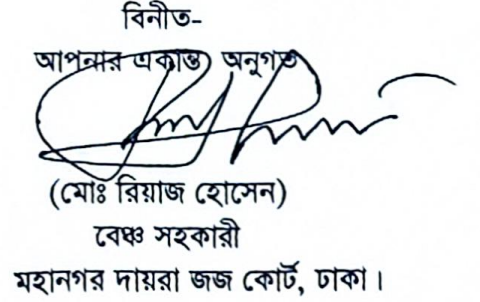 বিনীত-
আপনার একান্ত অনুগত
(মোঃ রিয়াজ হোসেন)
বেঞ্চ সহকারী
মহানগর দায়রা জজ কোর্ট, ঢাকা।